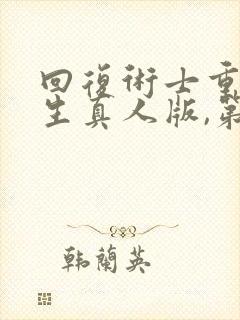 回復術士重
生真人版,第
韩蘭英